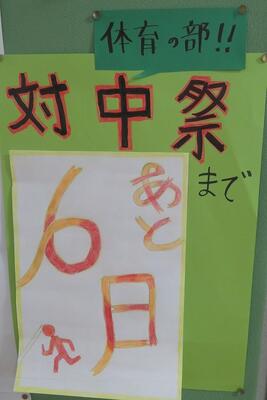 体育の部!!
対中祭
まで
あと
6日